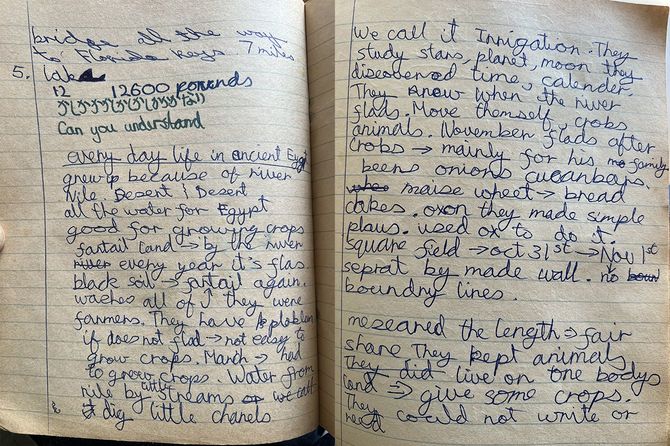 bridge all the way
to Florida Keys. 7 miles
5. lake
12 12600 pounds
Can you understand
every day life in ancient Egypt
grew up because of river
Nile Desert | Desert
all the water for Egypt
good for growing crops
fartail land → by the river
river every year it's flas.
black soil → fartail again.
waches all of ↑ they were
farmers. They have problem
if does not flad → not easy to
grow crops. March → had
to grow crops. Water from
nile by little streams or we call
& dig little chanels
We call it Inrigation. They
study stars, planet, moon they
discovered time, calender.
They know when the river
flads. Move themself crobs
animals. November flads after
crobs → mainly for his family
beens onions cucanbers.
maise wheet → bread
cakes. oxon they made simple
plaus. used ox to do it.
square field → oct 31st → Nov 1st
seprat by made wall. no
boundry lines.
meseared the length → fair
share They kept animals
They did live on one bodys
land → give some crops.
They could not write or
read